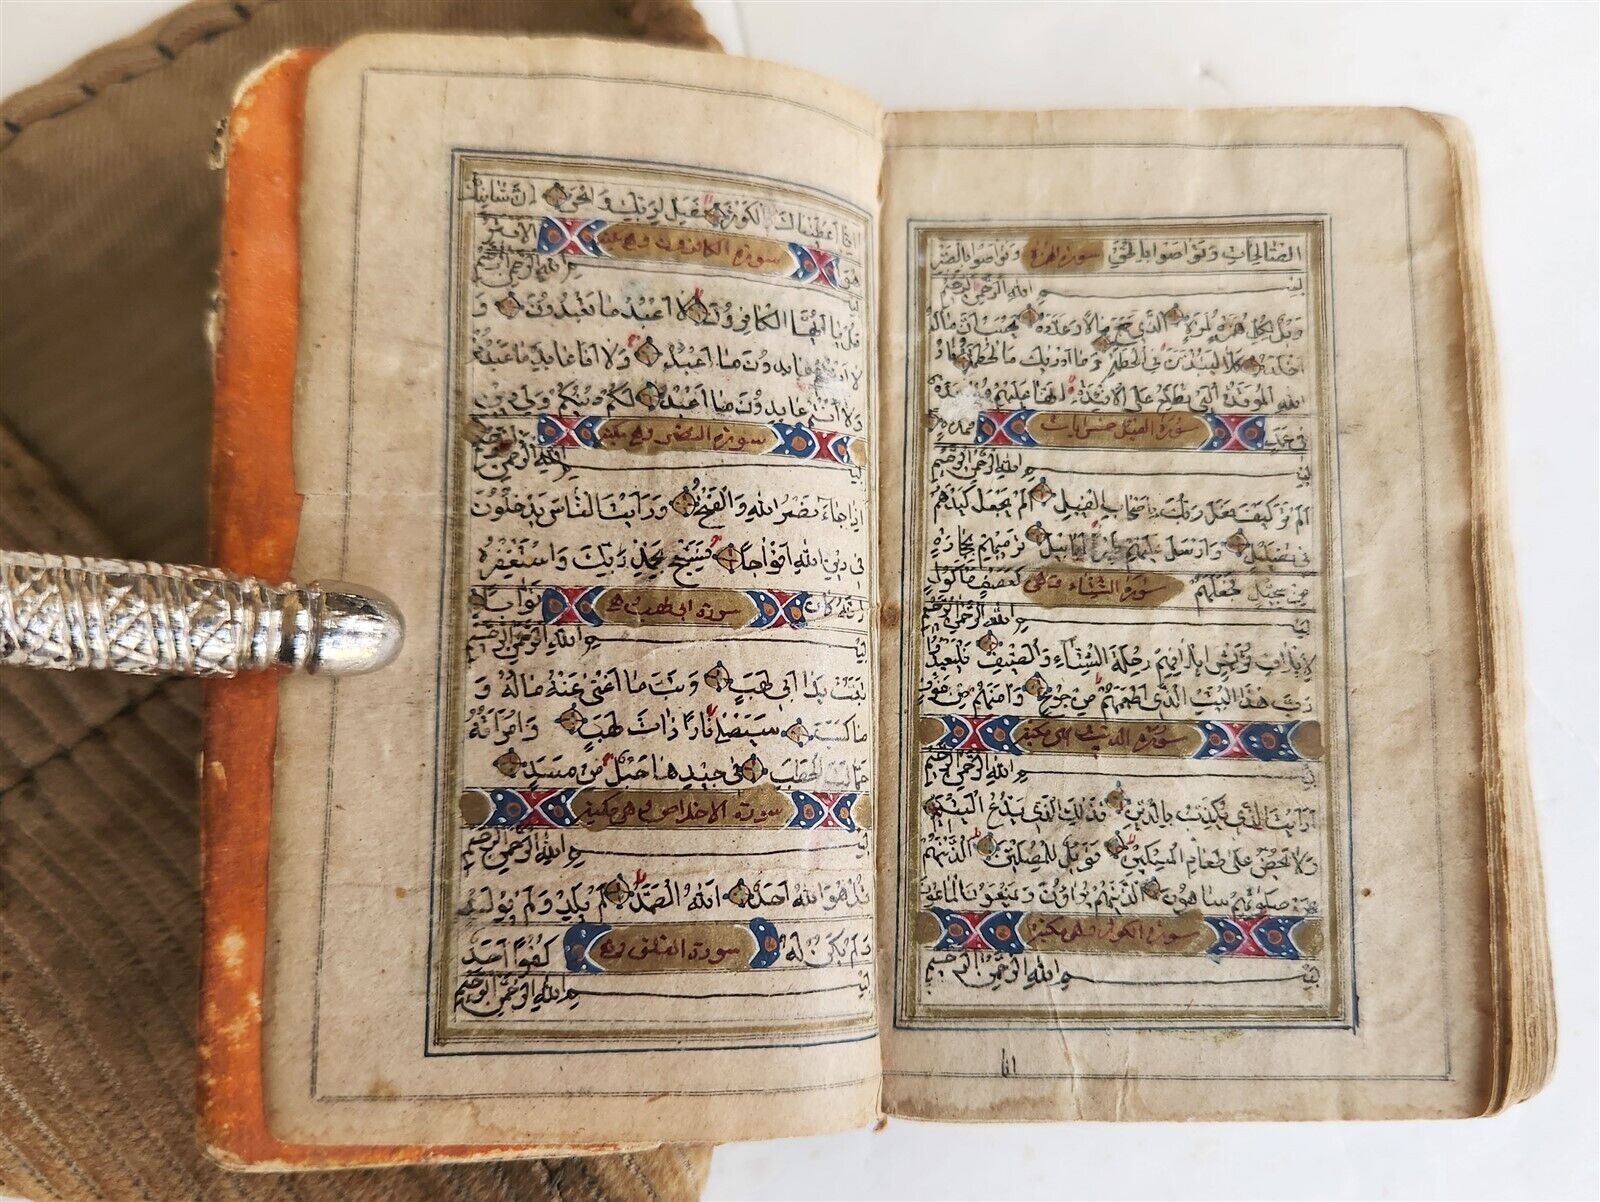 الصالحات وتواصوا بالحق سورة الهمزة وتواصوا بالصبر
بسم الله الرحمن الرحيم
ويل لكل همزة لمزة الذي جمع مالا وعدده يحسب ان ماله
اخلده كلا لينبذن في الحطمة وما ادريك ما الحطمة نار
الله الموقدة التي تطلع على الافئدة انها عليهم مؤصدة
في عمد سورة الفيل خمس ايات ممددة
بسم الله الرحمن الرحيم
الم تر كيف فعل ربك باصحاب الفيل الم يجعل كيدهم
في تضليل وارسل عليهم طيرا ابابيل ترميهم بحجارة
من سجيل فجعلهم سورة الشتاء كعصف ماكول
بسم الله الرحمن الرحيم
لايلاف قريش ايلافهم رحلة الشتاء والصيف فليعبدوا
رب هذا البيت الذي اطعمهم من جوع وامنهم من خوف
سورة الدين مكية
بسم الله الرحمن الرحيم
ارايت الذي يكذب بالدين فذلك الذي يدع اليتيم
ولا يحض على طعام المسكين فويل للمصلين الذينهم
عن صلوتهم ساهون الذينهم يراؤن ويمنعون الماعون
سورة الكوثر وهي مكية
بسم الله الرحمن الرحيم
انا
انا اعطيناك الكوثر فصل لربك وانحر ان شانئك
هو سورة الكافرون وهي مكية الابتر
بسم الله الرحمن الرحيم
قل يا ايها الكافرون لا اعبد ما تعبدون و
لا انتم عابدون ما اعبد ولا انا عابد ما عبدتم
ولا انتم عابدون ما اعبد لكم دينكم ولي دين
سورة النصر وهي مكية
بسم الله الرحمن الرحيم
اذا جاء نصر الله والفتح ورايت الناس يدخلون
في دين الله افواجا فسبح بحمد ربك واستغفره
انه كان سورة ابي لهب توابا
بسم الله الرحمن الرحيم
تبت يدا ابي لهب وتب ما اغنى عنه ماله و
ما كسب سيصلى نارا ذات لهب وامراته
حمالة الحطب في جيدها حبل من مسد
سورة الاخلاص وهي مكية
بسم الله الرحمن الرحيم
قل هو الله احد الله الصمد لم يلد ولم يولد
ولم يكن له سورة الفلق كفوا احد
بسم الله الرحمن الرحيم